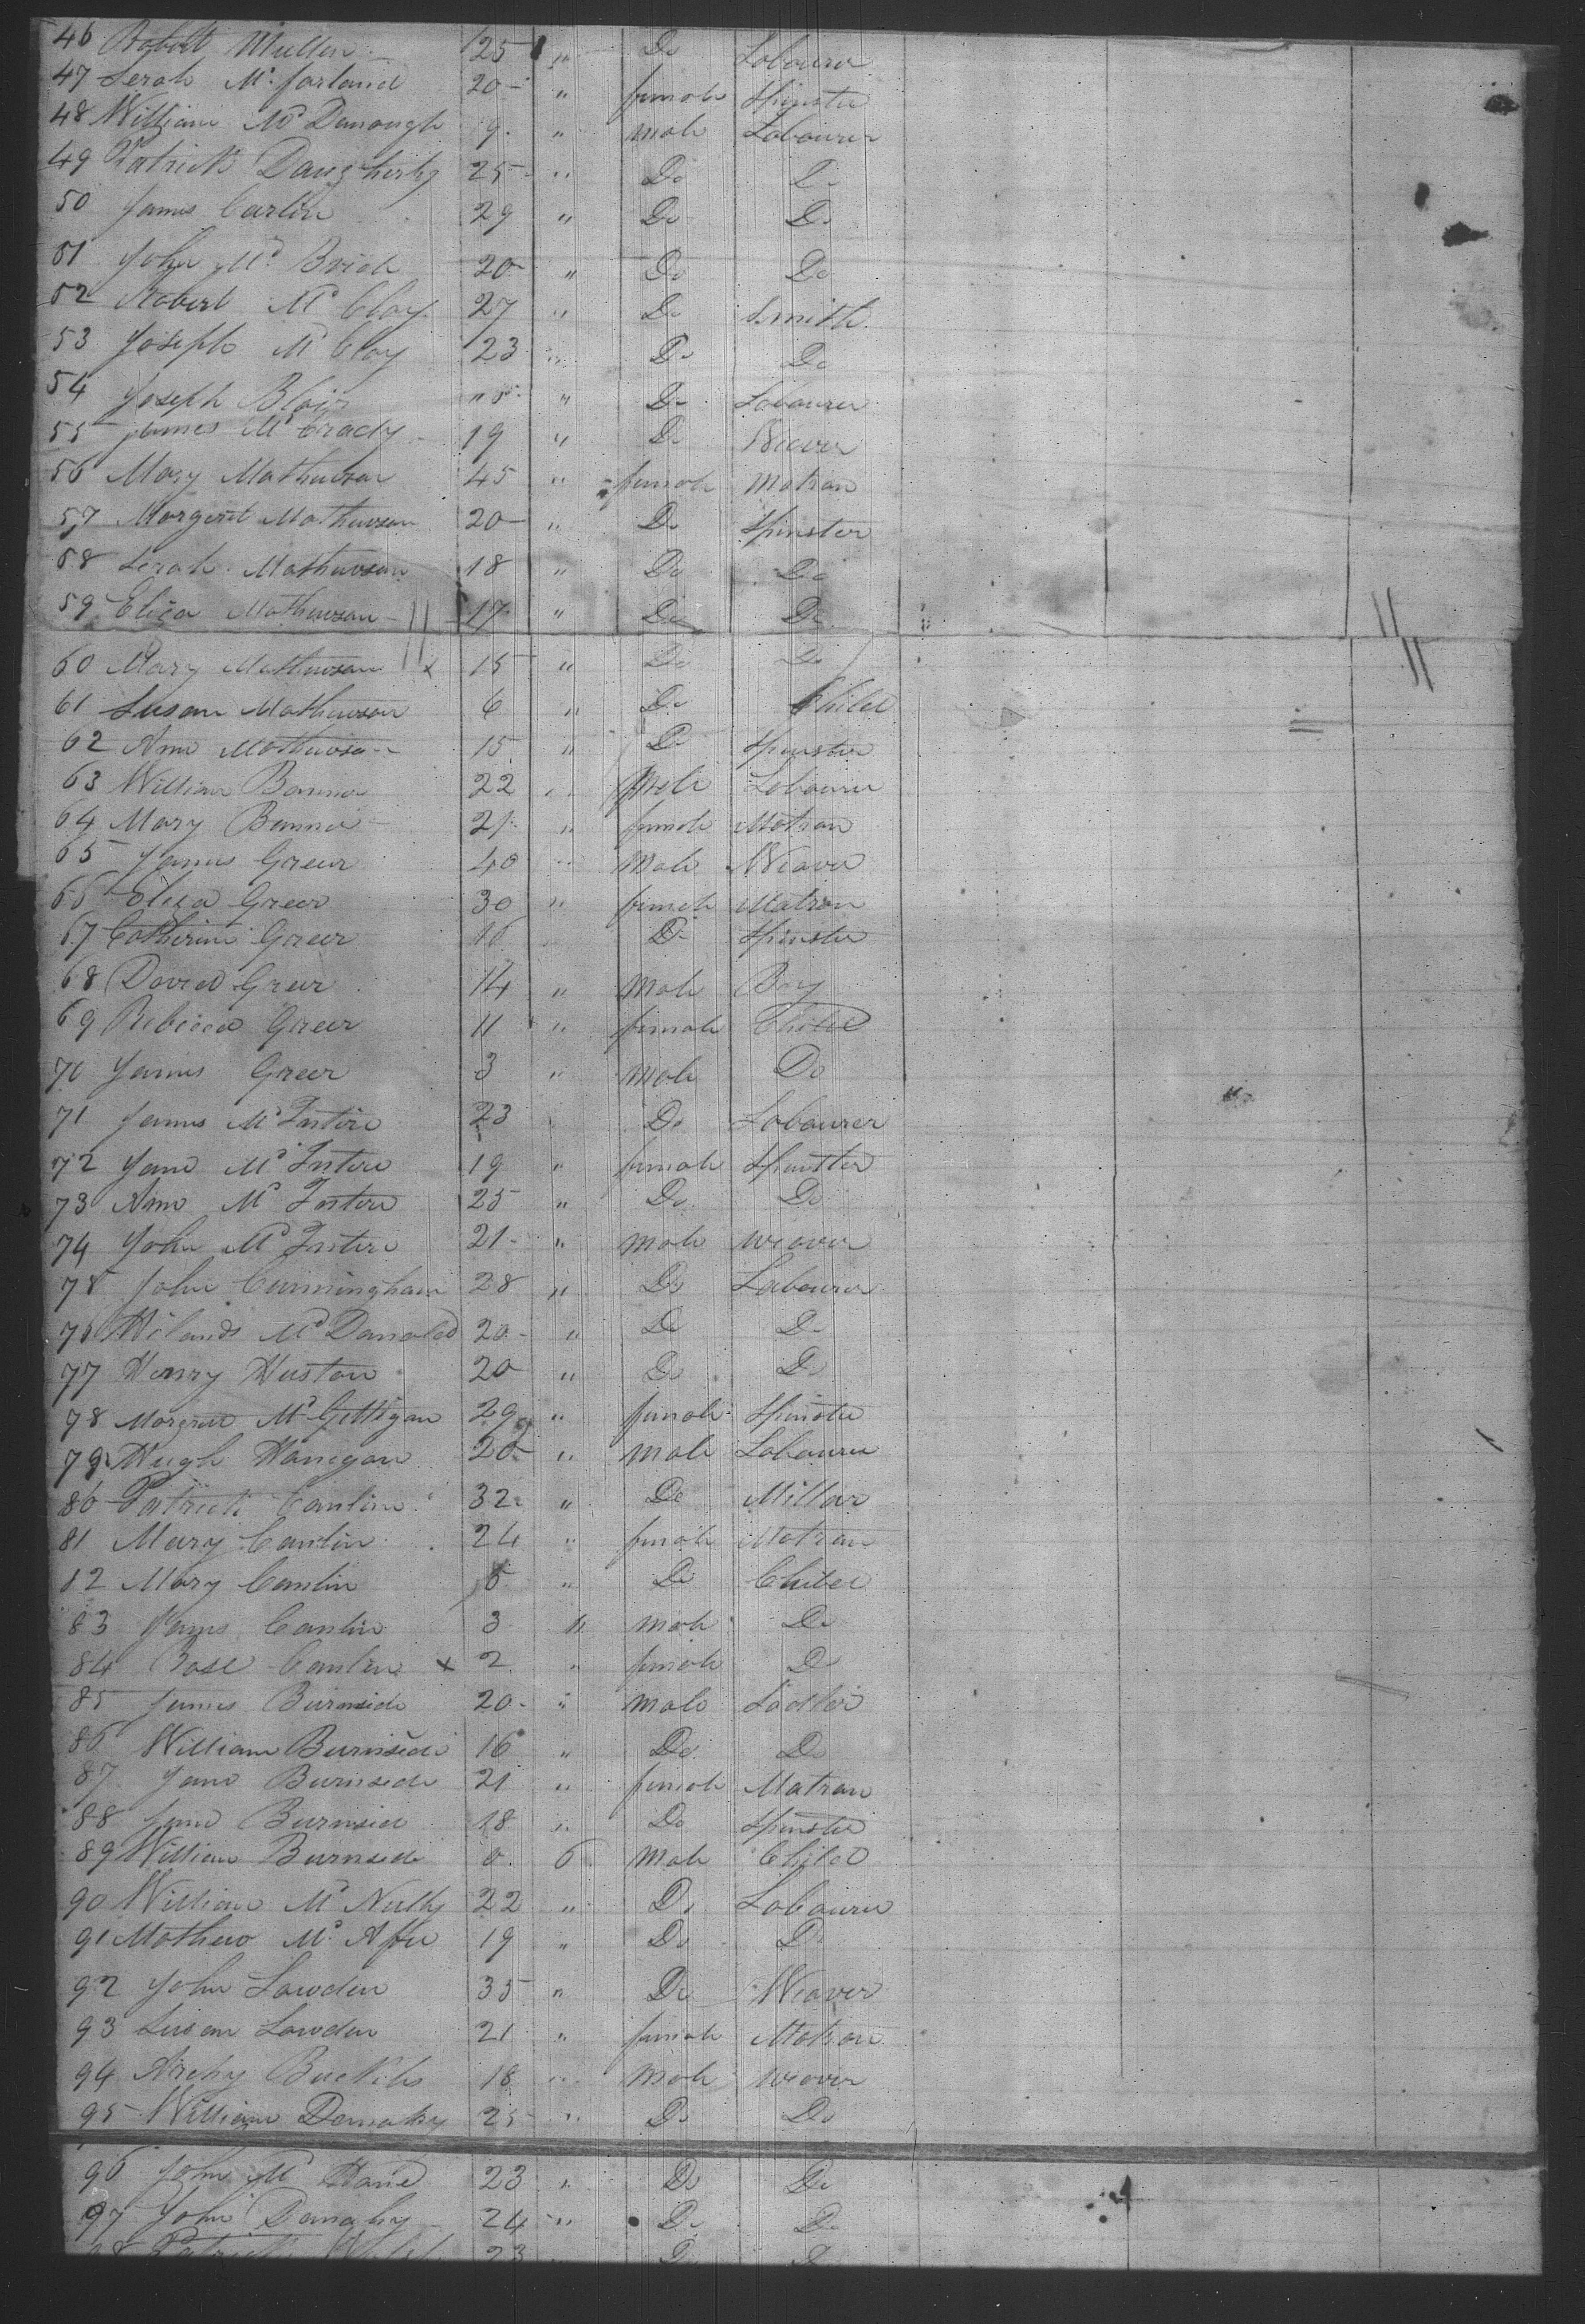 46 Robert Mullen 25 " Do Labourer
47 Serah Mc farland 20 " female Spinster
48 William Mc Donough 9 " male Labourer
49 Patrick Daugherty 25 " Do Do
50 James Carlin 29 " Do Do
51 John Mc Bride 20 " Do Do
52 Robert Mc Cloy 27 " Do Smith
53 Joseph Mc Cloy 23 " Do Do
54 Joseph Blair " Do Labourer
55 James Mc Crady 19 " Do Weaver
56 Mary Mathewson 45 " female Matron
57 Margret Mathewson 20 " Do Spinster
58 Serah Mathewson 18 " Do Do
59 Eliza Mathewson 17 " Do Do
60 Mary Mathewson x 15 " Do Do
61 Susan Mathewson 6 " Do Child
62 Ann Mathewson 15 " Do Spinster
63 William Bonner 22 " Male Labourer
64 Mary Bonner 21 " female Matron
65 James Greer 40 " Male Weaver
66 Eliza Greer 30 " female Matron
67 Catherine Greer 16 Do Spinster
68 David Greer 14 " Male Boy
69 Rebecca Greer 11 " female Child
70 James Greer 3 " Male Do
71 James Mc Intire 23 Do Labourer
72 Jane Mc Intire 19 " female Spinster
73 Ann Mc Intire 25 " Do Do
74 John Mc Intire 21 " male weaver
75 John Cunningham 28 " Do Labourer
76 Mc Donald 20 " Do Do
77 Henry Huston 20 " Do Do
78 Margret Mc Gettigan 29 " female Spinster
79 Hugh Hanegan 20 " male Labourer
80 Patrick Conlin 32 " Do Millar
81 Mary Conlin 24 " female Matron
82 Mary Conlin 5 " Do Child
83 James Conlin 3 " male Do
84 Rose Conlin x 2 " female Do
85 James Burnside 20 " male Sadler
86 William Burnside 16 " Do Do
87 Jane Burnside 21 " female Matron
88 Jane Burnside 18 " Do Spinster
89 William Burnside 0 6 Male Child
90 William Mc Nulty 22 " Do Labourer
91 Mathew Mc Affee 19 " Do Do
92 John Lowden 35 " Do Weaver
93 Susan Lowden 21 " female Matron
94 Archy Buckels 18 " Male weaver
95 William Denahy 25 " Do Do
96 John Mc 23 " Do Do
97 John Danahy 24 " Do Do
98 Patrick 23 Do Do